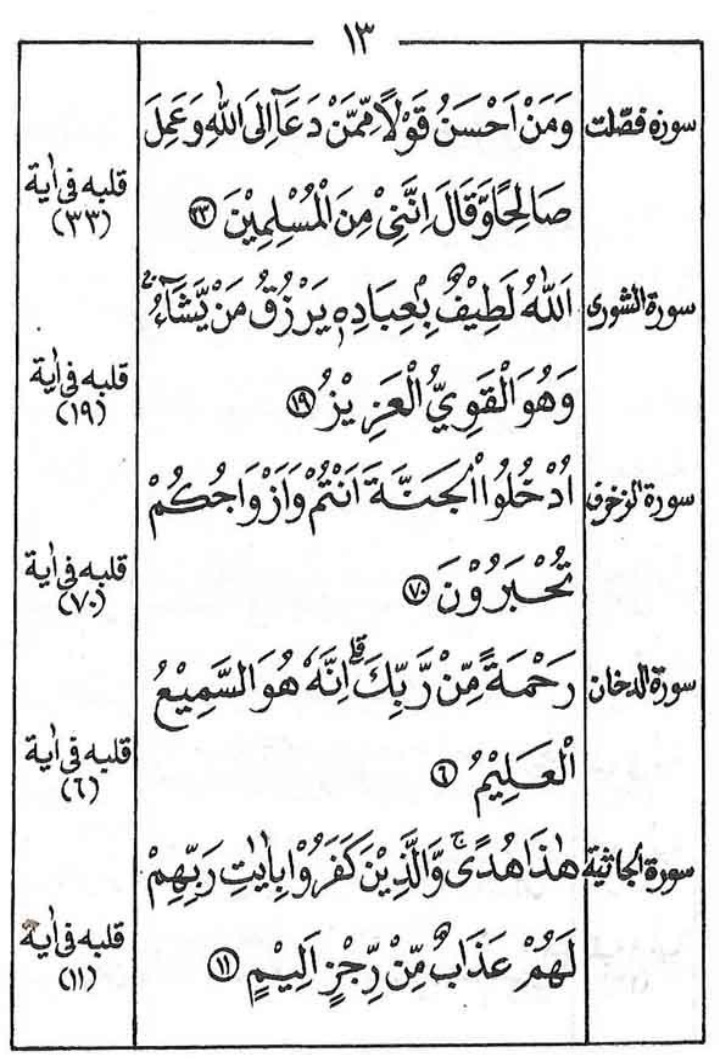 ١٣
سورة فصّلت
وَمَنْ اَحْسَنُ قَوْلًا مِّمَّنْ دَعَآ اِلَى اللّٰهِ وَعَمِلَ
صَالِحًا وَّقَالَ اِنَّنِىْ مِنَ الْمُسْلِمِيْنَ ﴿٣٣﴾
قلبه فى أية
(٣٣)
سورة الشورى
اَللّٰهُ لَطِيْفٌۢ بِعِبَادِهٖ يَرْزُقُ مَنْ يَّشَآءُ ۚ
وَهُوَ الْقَوِيُّ الْعَزِيْزُ ﴿١٩﴾
قلبه فى أية
(١٩)
سورة الزخرف
اُدْخُلُوا الْجَنَّةَ اَنْتُمْ وَاَزْوَاجُكُمْ
تُحْبَرُوْنَ ﴿٧٠﴾
قلبه فى أية
(٧٠)
سورة الدخان
رَحْمَةً مِّنْ رَّبِّكَ ۗ اِنَّهٗ هُوَ السَّمِيْعُ
الْعَلِيْمُ ﴿٦﴾
قلبه فى أية
(٦)
سورة الجاثية
هٰذَا هُدًى ۚ وَالَّذِيْنَ كَفَرُوْا بِاٰيٰتِ رَبِّهِمْ
لَهُمْ عَذَابٌ مِّنْ رِّجْزٍ اَلِيْمٍ ﴿١١﴾
قلبه فى أية
(١١)